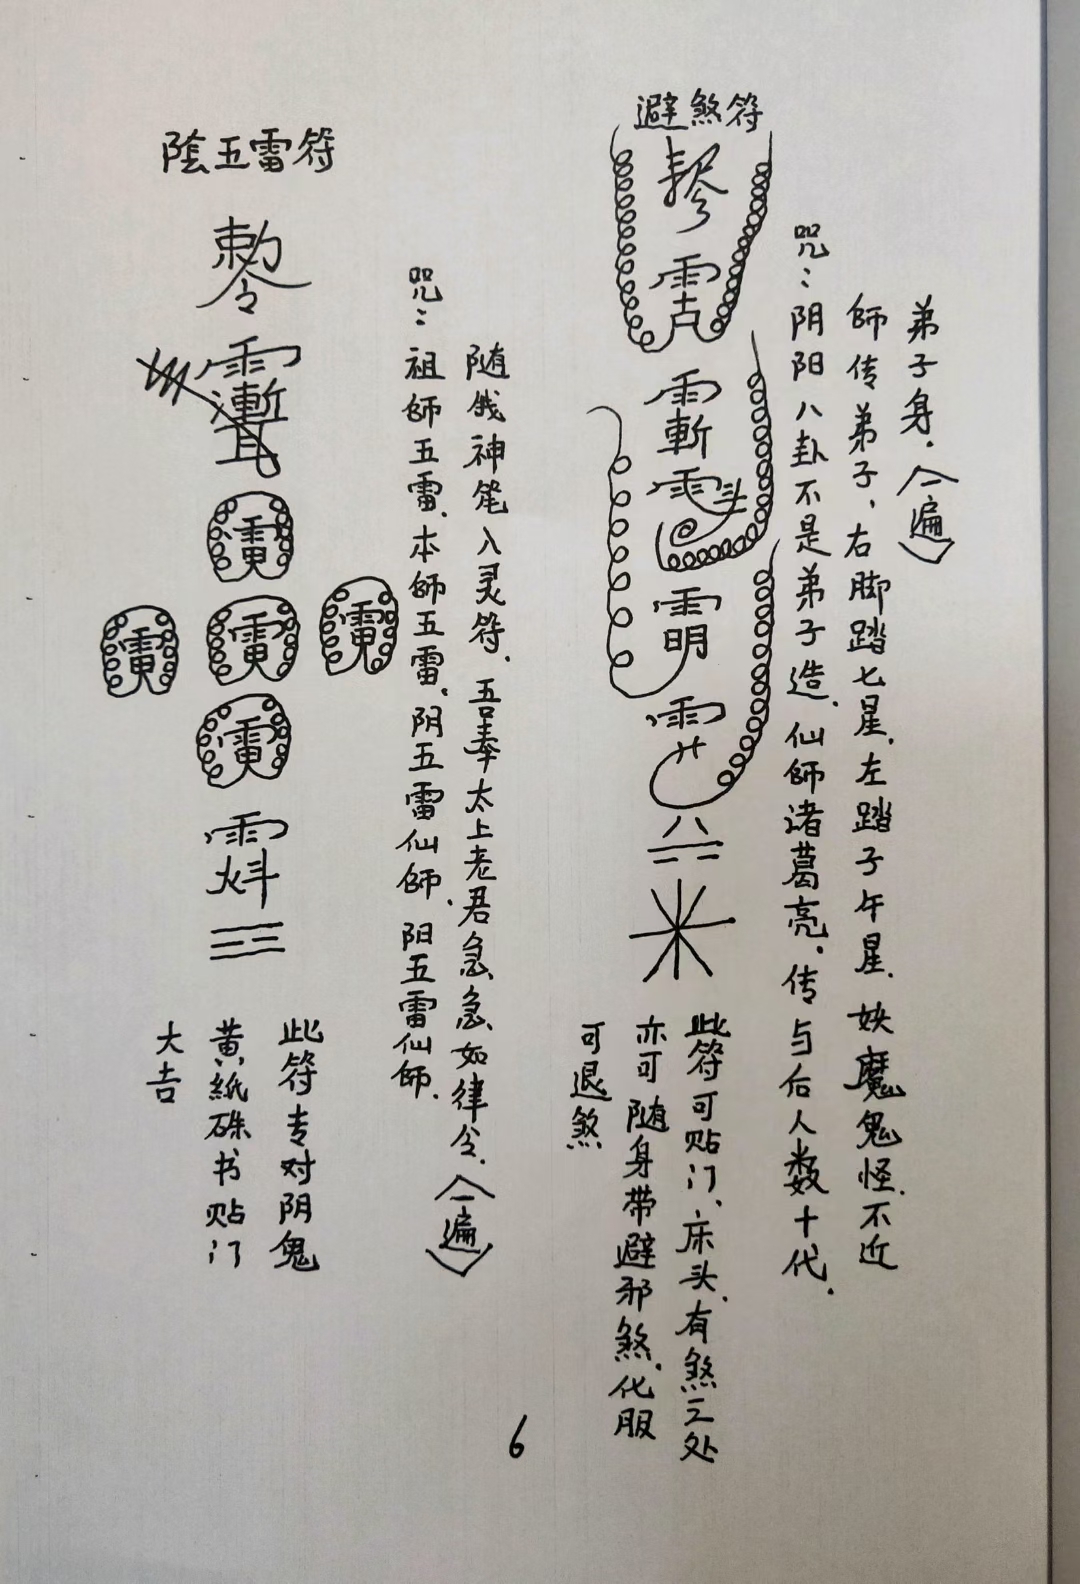 避煞符
咒：阴阳八卦不是弟子造.仙師诸葛亮.传与后人数十代.
師传弟子,右脚踏七星.左踏子午星.妖魔鬼怪.不近
弟子身.（一遍）
此符可贴门、床头.有煞之处
亦可随身带避邪煞.化服
可退煞
陰五雷符
敕令
咒：祖師五雷.本師五雷.阴五雷仙師.阳五雷仙師.
随俄神笔入灵符.吾奉太上老君急急如律令.（一遍）
此符专对阴鬼
黄紙硃书贴门
大吉
6